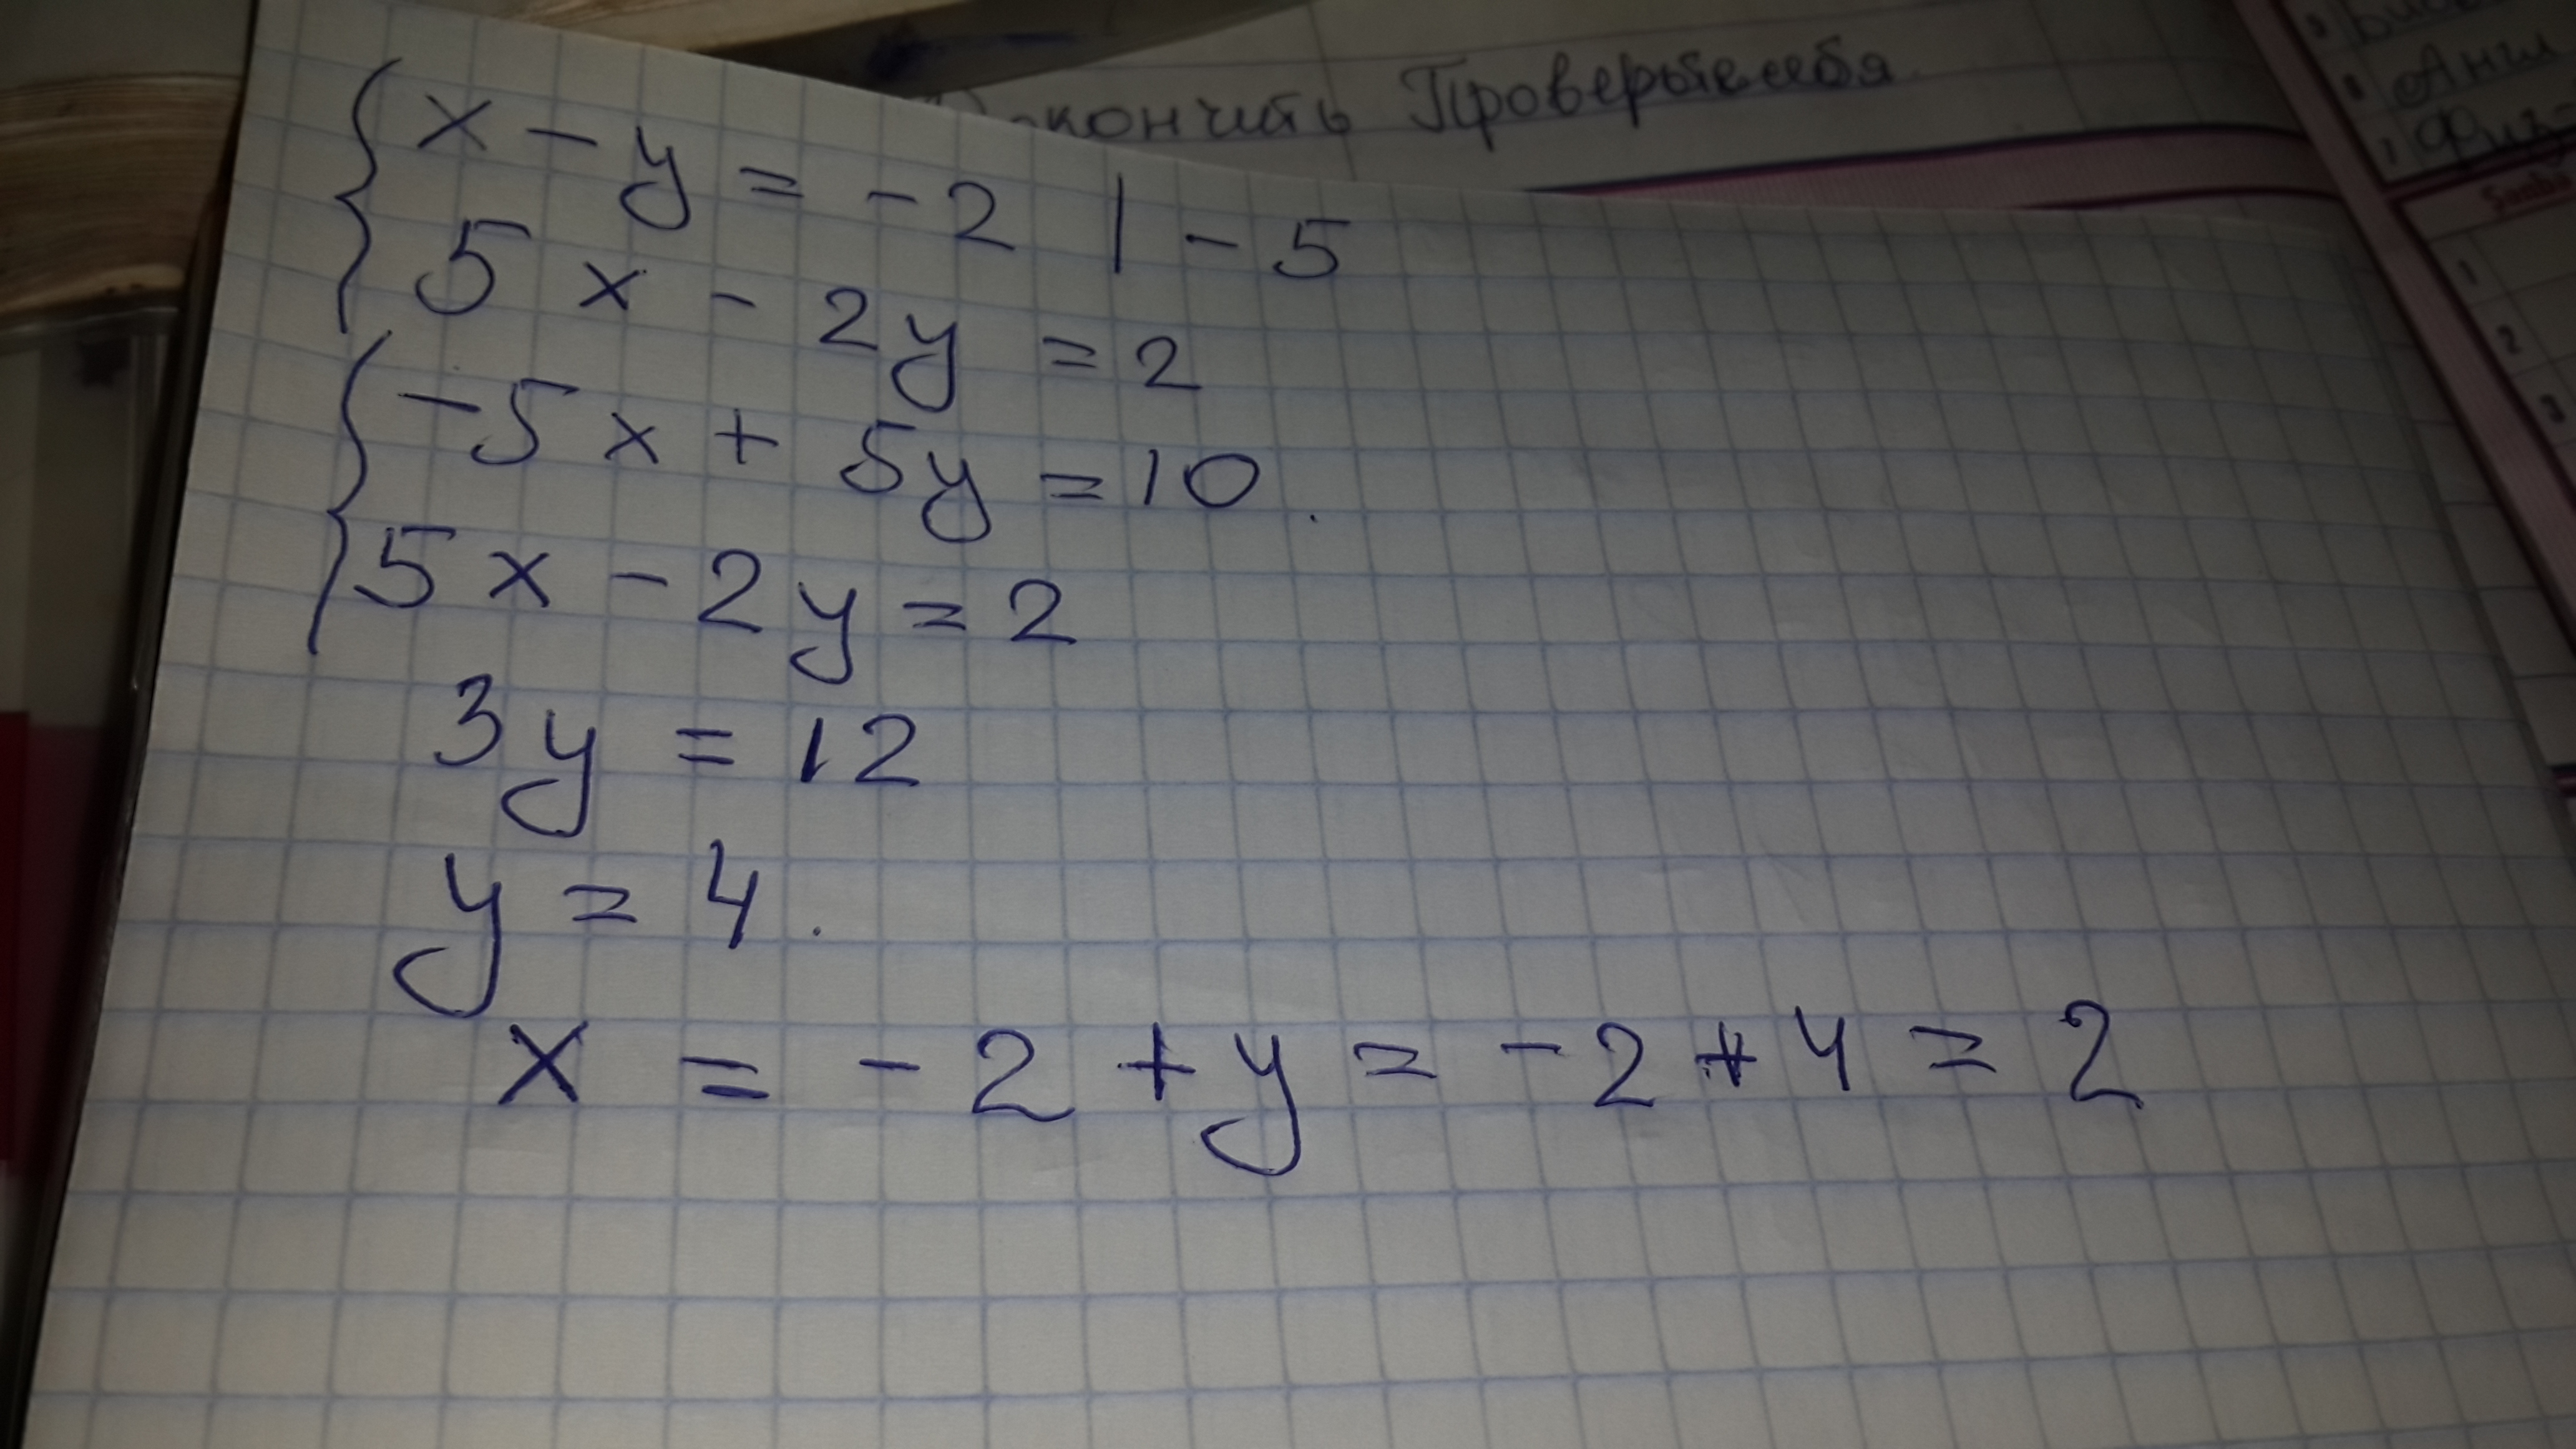 окончить Проверьте себя
Англ
1
2
3
x - y = -2 | - 5
5x - 2y = 2
-5x + 5y = 10.
5x - 2y = 2
3y = 12
y = 4.
x = -2 + y = -2 + 4 = 2